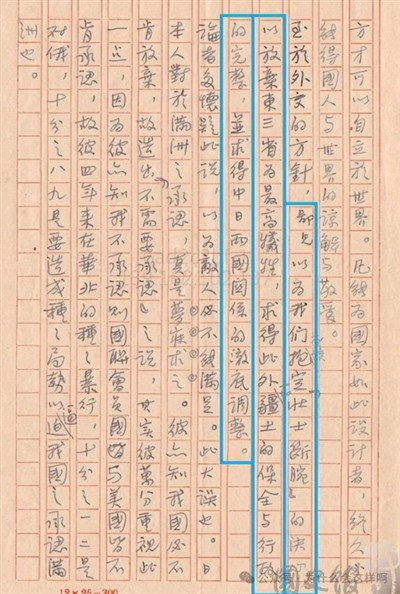 方才可以自立於世界。凡能為國家如此設計者,終久必
能得國人與世界的諒解與敬愛。
至於外交的方針,鄙見以為我們抱定「壯士斷腕」的決
以放棄東三省為最高犧牲,求得此外疆土的保全與行政
的完整,並求得中日兩國關係的澈底調整。
論者多懷疑此說,以為敵人必不能滿足。此大誤也。日
本人對於滿洲之承認,真是夢寐求之。彼亦知我國必不
肯放棄,故造出「不需要承認」之說,其實彼萬分重視此
一點,因為彼亦知我不承認則國聯會員國與美國皆不
肯承認,故彼四年來在華北的種々暴行,十分之一二是
對俄,十分之八九是要造成種々局勢以逼我國之承認滿
洲也。
12×25=300
國史館
公众号
会这样网